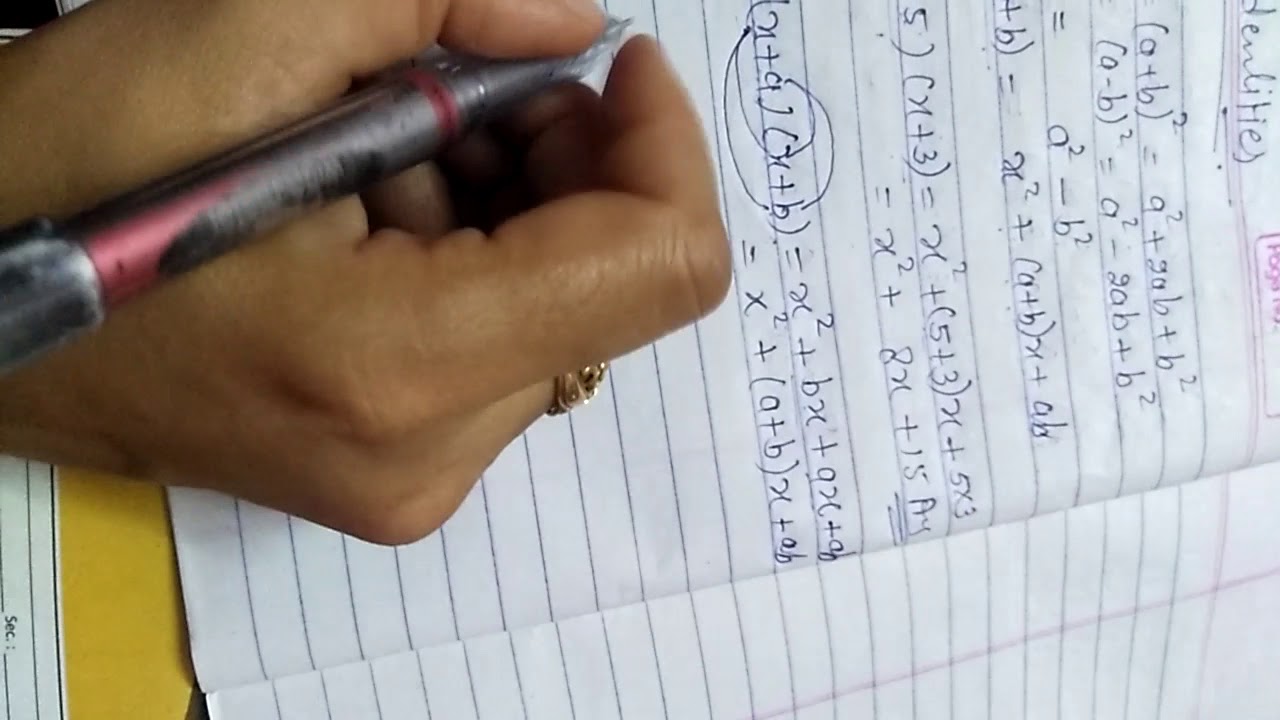 = (a+b)² = a² + 2ab + b²
= (a-b)² = a² - 2ab + b²
= a² - b²
+b) = x² + (a+b)x + ab
5) (x+3) = x² + (5+3)x + 5x3
= x² + 8x + 15 Ans
(x+a) (x+b) = x² + bx + ax + ab
= x² + (a+b)x + ab
Sec. :